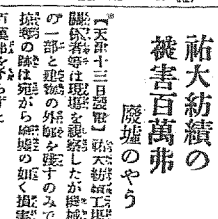 祐大紡績の
被害百萬弗
廢墟のやう
【天津十三日發電】祐大紡績工場
關係者等は現場を視察したが機械
の一部と建物の外廓を殘すのみで
掠奪の跡は宛がら廢墟の如く損害